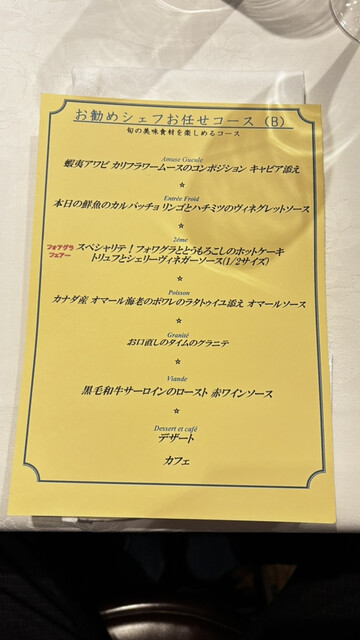 お勧めシェフお任せコース (B)
旬の美味食材を楽しめるコース
Amuse Gueule
蝦夷アワビ カリフラワームースのコンポジション キャビア添え
☆
Entrée Froid
本日の鮮魚のカルパッチョ リンゴとハチミツのヴィネグレットソース
☆
2éme
フォアグラ
フェアー
スペシャリテ!フォワグラととうもろこしのホットケーキ
トリュフとシェリーヴィネガーソース(1/2サイズ)
☆
Poisson
カナダ産 オマール海老のポワレのラタトゥイユ添え オマールソース
☆
Granité
お口直しのタイムのグラニテ
☆
Viande
黒毛和牛サーロインのロースト 赤ワインソース
☆
Dessert et café
デザート
カフェ